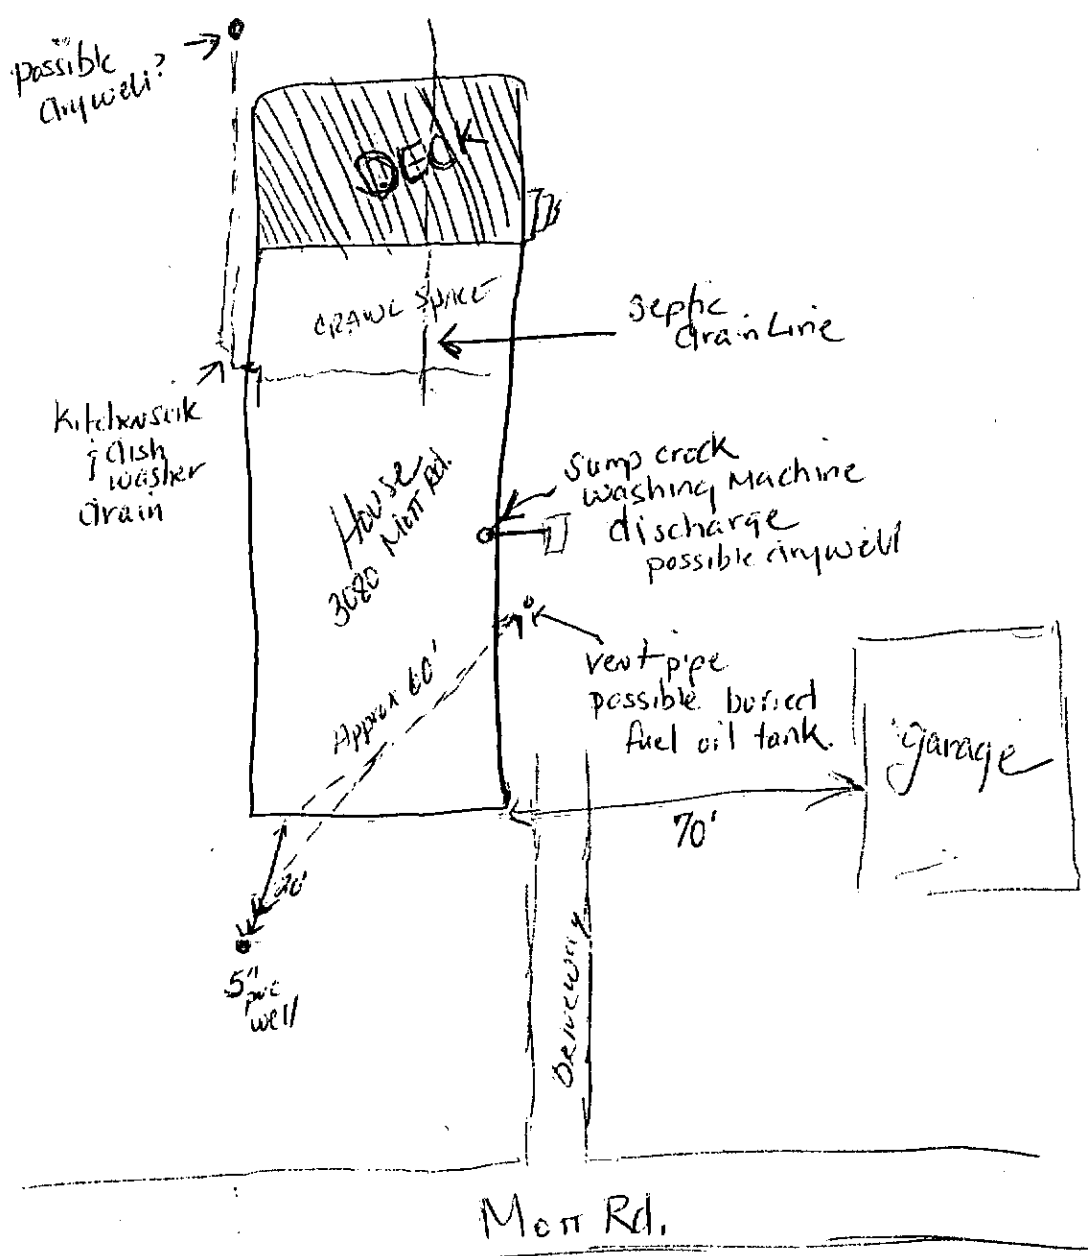 possible
drywell?
DECK
CRAWL SPACE
septic
drain Line
Kitchen sink
& dish
washer
drain
House
3080 Mott Rd.
Sump crock
washing Machine
discharge
possible drywell
vent pipe
possible buried
fuel oil tank.
Approx 60'
garage
70'
20'
5"
pvc
well
DRIVEWAY
Mott Rd.